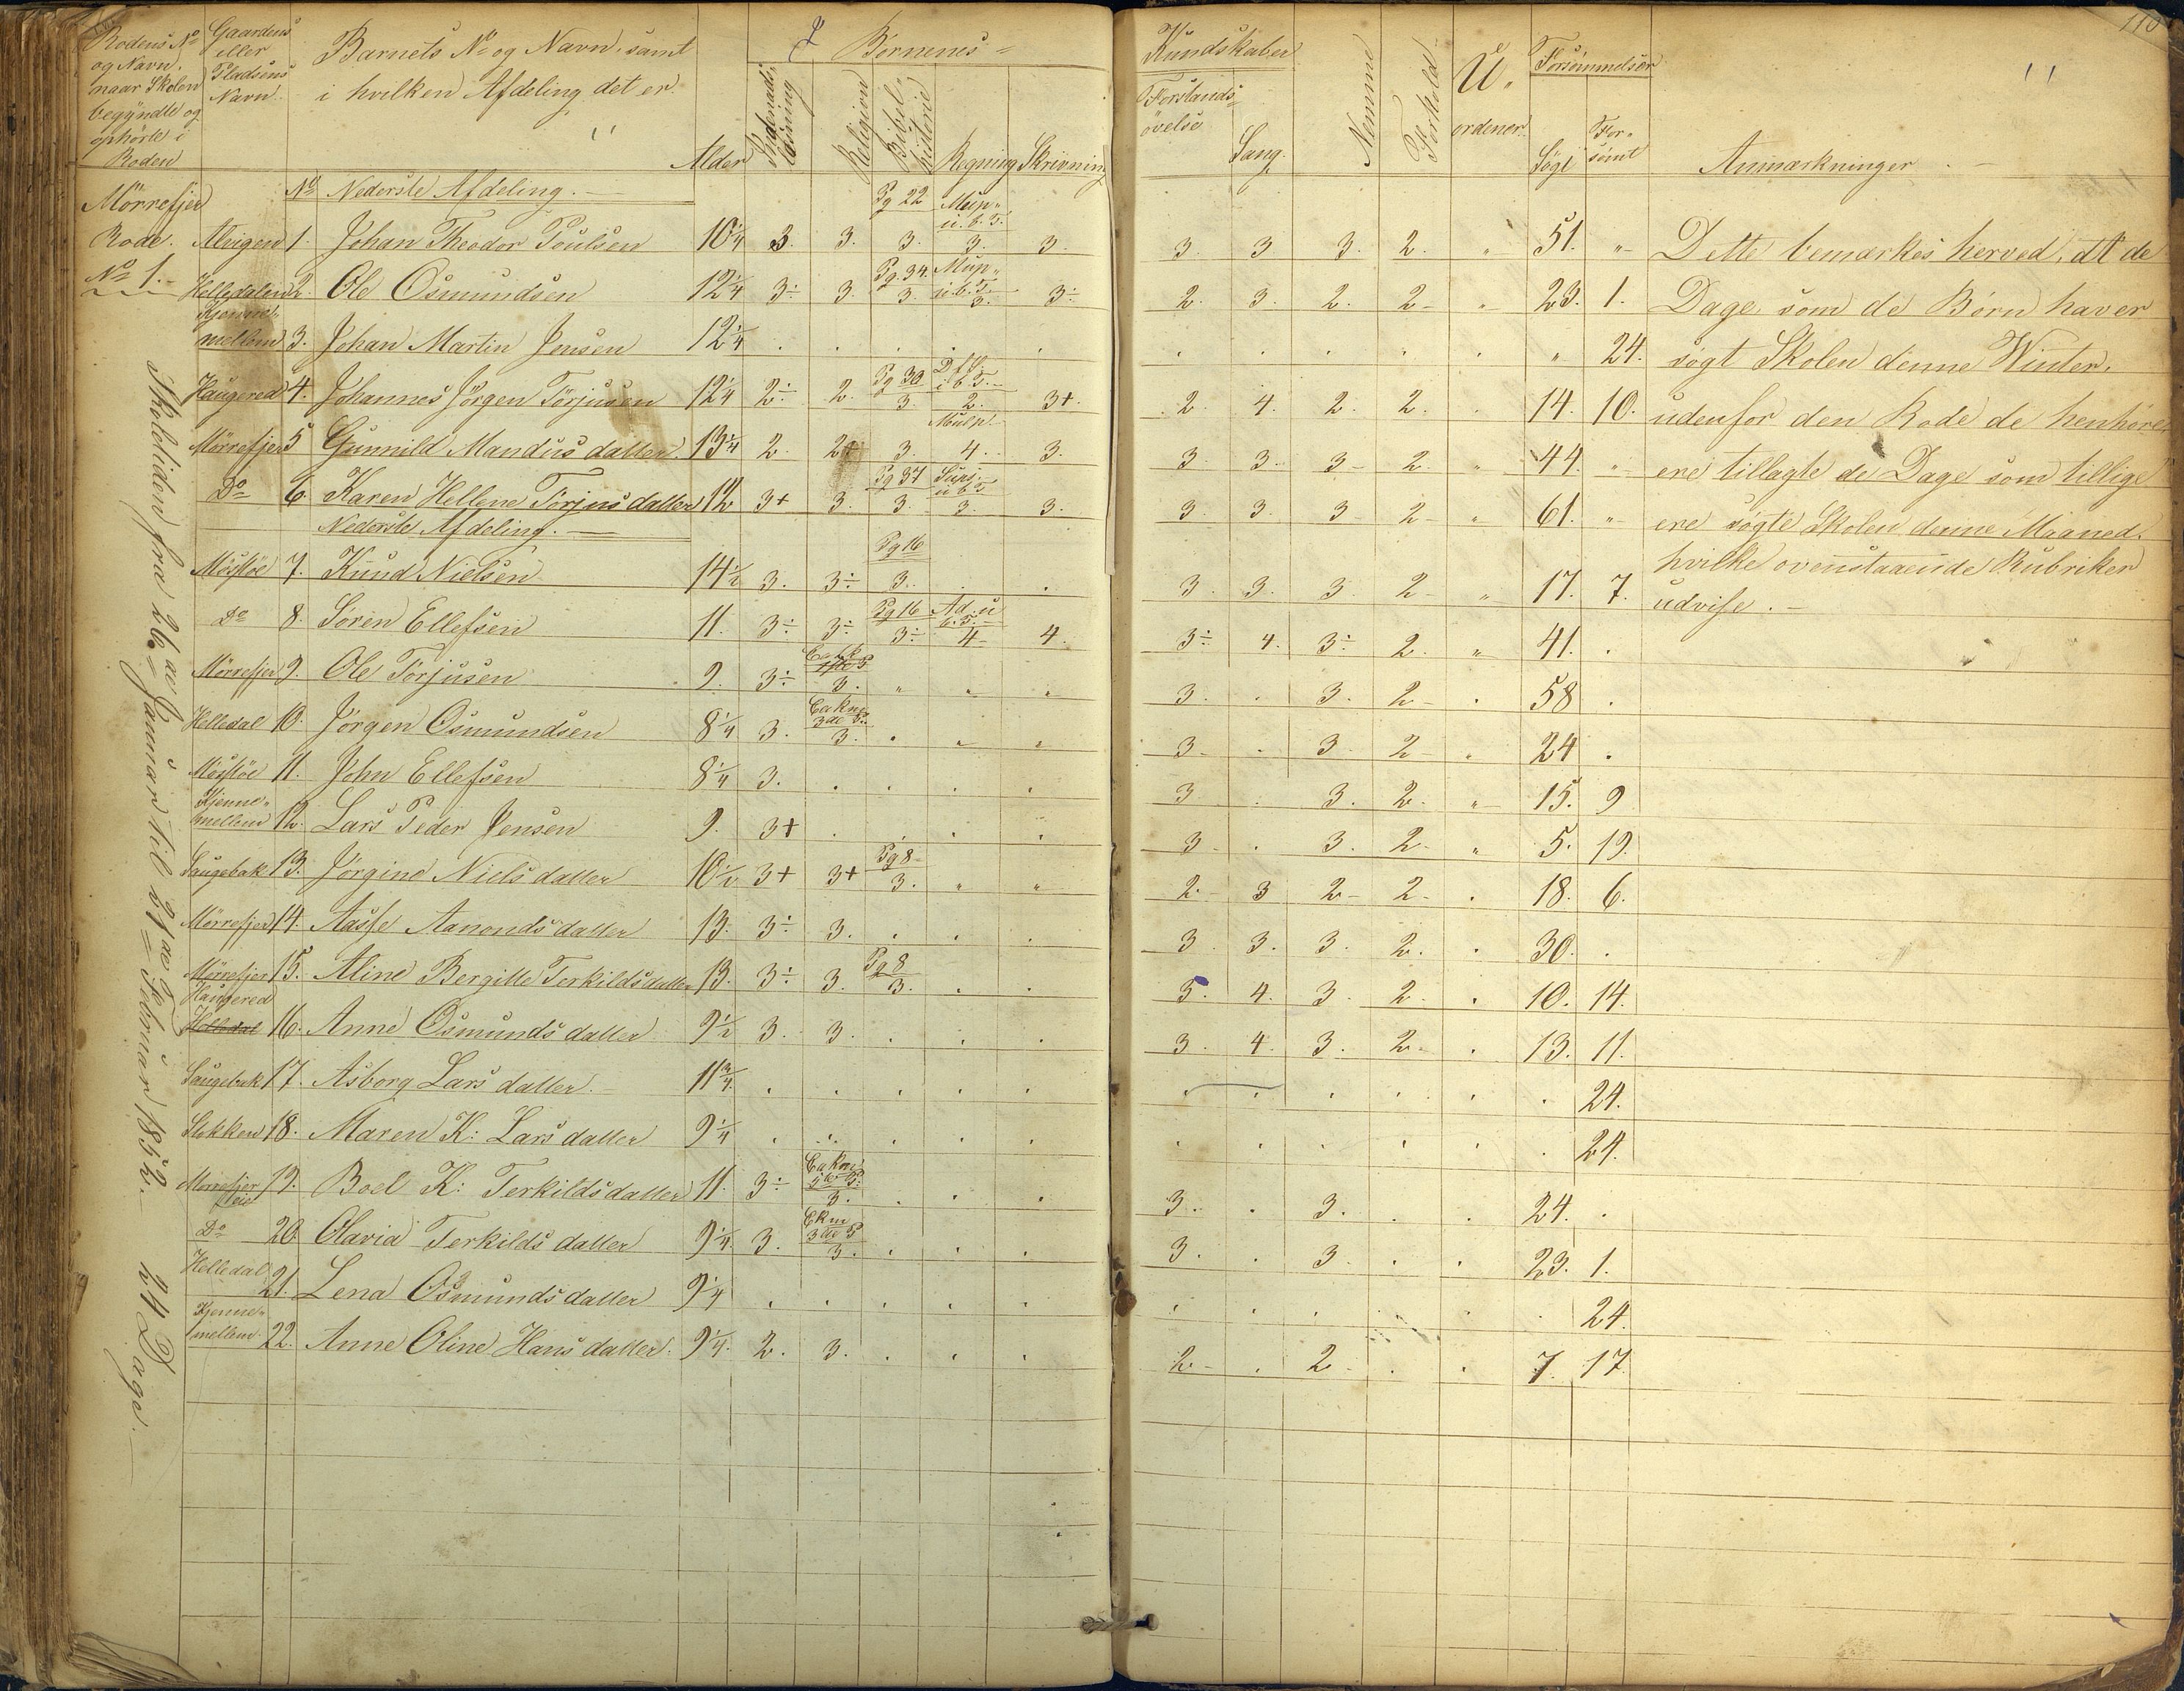 Rodens No og Navn, naar Skolen begyndte og ophörte i Roden | Gaardens eller Pladsens Navn. | Barnets No og Navn, samt i hvilken Afdeling det er. | Alder | Religion | Bibel-historie | Regning | Skrivning
Börnenes
Kundskaber | Forstands-övelse | Sang. | Nemme | Forhold | U-ordener. | Forsömmelser | Sögt | For-sömt | Anmærkninger
110
Mörrefjer Rode. No 1.
No Nederste Afdeling. Pg 22 Mup. u. b. T.
Alvigen 1. Johan Theodor Poulsen 10 1/4 3. 3. 3. 3. 3. 3 3 3. 2. " 51. "
Helledalen 2. Ole Osmundsen 12 1/4 3÷ 3. Pg. 34. 3. Mup. u. b. T. 3. 3÷ 2. 3. 2. 2 " 23. 1.
Kjenne-mellem 3. Johan Martin Jensen 12 1/4 . . . . . . . . . . " 24.
Haugered 4. Johannes Jörgen Törjusen 12 1/4 2÷ 2. Pg 30 3 i b. T. 2. 3+. 2. 4. 2. 2. . 14. 10.
Mörrefjer 5 Gunnild Mandus datter 13 1/4 2. 2÷ 3. Mulp. 4. 3. 3. 3. 3 2. " 44. "
Do 6. Karen Hellene Törjus datter 12 3+ 3. Pg 37 3. u b T 3. 3. 3. 3. 3 2 " 61. "
Nederste Afdeling.
Möstöe 7. Knud Nielsen 14 1/2 3. 3÷ Pg 16 3. . . 3. 3. 3. 2 " 17. 7.
Do 8. Sören Ellefsen 11. 3÷ 3÷ Pg 16 3÷ Ad. u b. T. 4 4. 3÷ 4. 3÷ 2. " 41. .
Mörrefjer 9. Ole Törjusen 9. 3÷ 3. " " " 3. . 3. 2 . 58 .
Helledal 10. Jörgen Osmundsen 8 1/4 3. 3de P. 3. . " " 3 . 3 2 " 24 .
Möstöe 11. John Ellefsen 8 1/4 3. . . . . 3 . 3. 2. " 15. 9
Kjenne-mellem 12. Lars Peder Jensen 9. 3+ . . . . 3 . 3. 2 " 5. 19.
Saugebak 13. Jörgine Niels datter 10 1/2 3+ 3+ Pg 8 3. " " 2 3 2 2 . 18. 6.
Mörrefjer 14. Aasse Aanonds datter 13. 3÷ 3. . . . 3. 3. 3. 2. . 30. .
Mörrefjer 15. Aline Bergitte Terkildsdatter 13. 3÷ 3. Pg 8 3. . . 3. 4. 3. 2. . 10. 14.
Haugered Helledal 16. Anne Osmunds datter 9 1/2 3. 3. . . . 3. 4. 3. 2 . 13. 11.
Saugebak 17. Asborg Lars datter. 11 3/4. . . . . . . . . . . . 24.
Stokken 18. Maren K: Lars datter 9 1/4 . . . . . . . . . . . 24.
Mörrefjer 19. Boel K: Terkildsdatter 11. 3÷ 5te P. 3. . . . 3. . 3. . . 24. .
Do 20. Olavia Terkilds datter 9 1/4. 3. 3de P 3. . . . 3. . 3. . . 23. 1.
Helledal 21. Lena Osmunds datter 9 1/4 . . . . . . . . . . . 24.
Kjenne-mellem. 22. Anne Oline Hans datter. 9 1/4. 2. 3. . . . 2 . 2 . . 7. 17
Dette bemærkes herved, at de
Dage som de Börn haver
sögt Skolen denne Winter,
udenfor den Rode de henhöre
ere tillagte de Dage som tillige
ere sögte Skolen denne Maaned.
hvilke ovenstaaende Rubriker
udvise.
Skoletiden fra 26de Januar til 21de Februar 1852. 24 Dage.